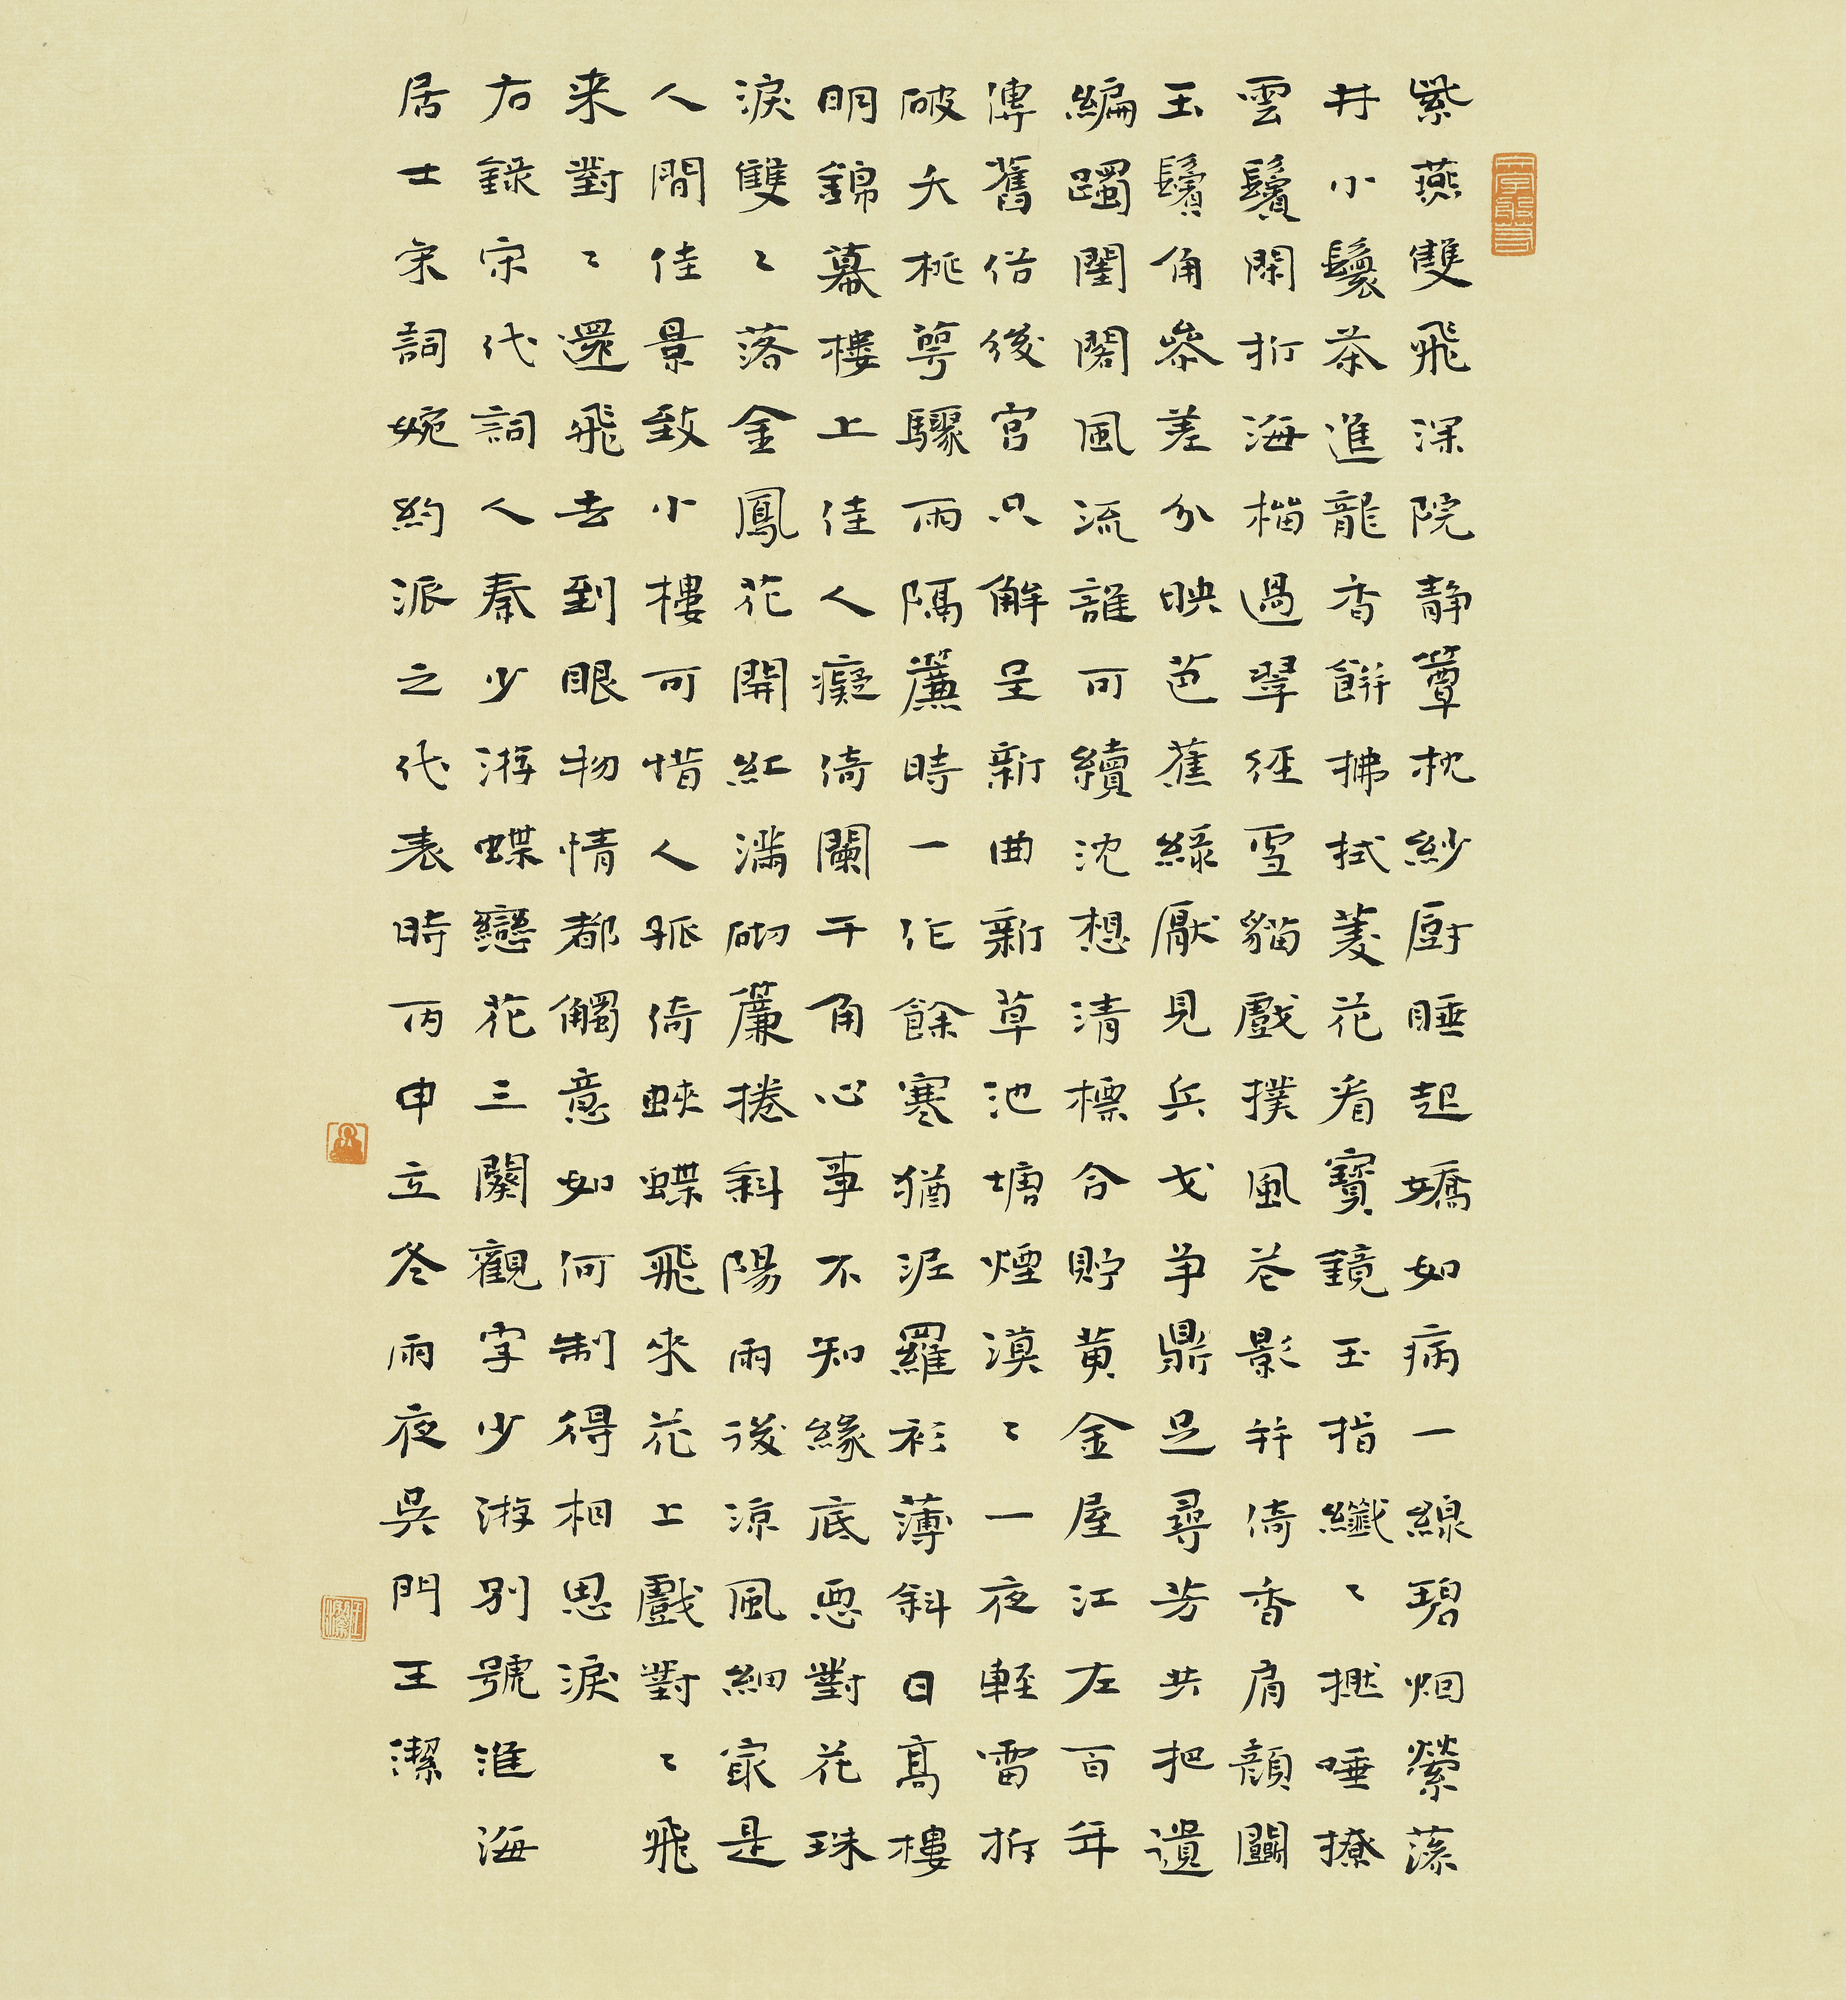 紫燕雙飛深院靜簟枕紗厨睡起嬌如病一線碧烟縈藻
井小鬟茶進龍香餅拂拭菱花看寶鏡玉指纖〻撚唾撩
雲鬢閑折海榴過翠徑雪貓戲撲風花影并倚香肩顏鬭
玉鬢角參差分映芭蕉綠厭見兵戈争鼎足尋芳共把遺
編躅閨閣風流誰可續沈想清標合貯黄金屋江左百年
傳舊俗後宮只解呈新曲新草池塘煙漠〻一夜輕雷拆
破夭桃萼驟雨隔簾時一作餘寒猶泥羅衫薄斜日高樓
明錦幕樓上佳人癡倚闌干角心事不知緣底惡對花珠
淚雙〻落金鳳花開紅滿砌簾捲斜陽雨後涼風細寂是
人間佳景致小樓可惜人孤倚蛺蝶飛來花上戲對〻飛
来對〻還飛去到眼物情都觸意如何制得相思淚
右錄宋代詞人秦少游蝶戀花三闋觀字少游別號淮海
居士宋詞婉約派之代表時丙申立冬雨夜吳門王潔